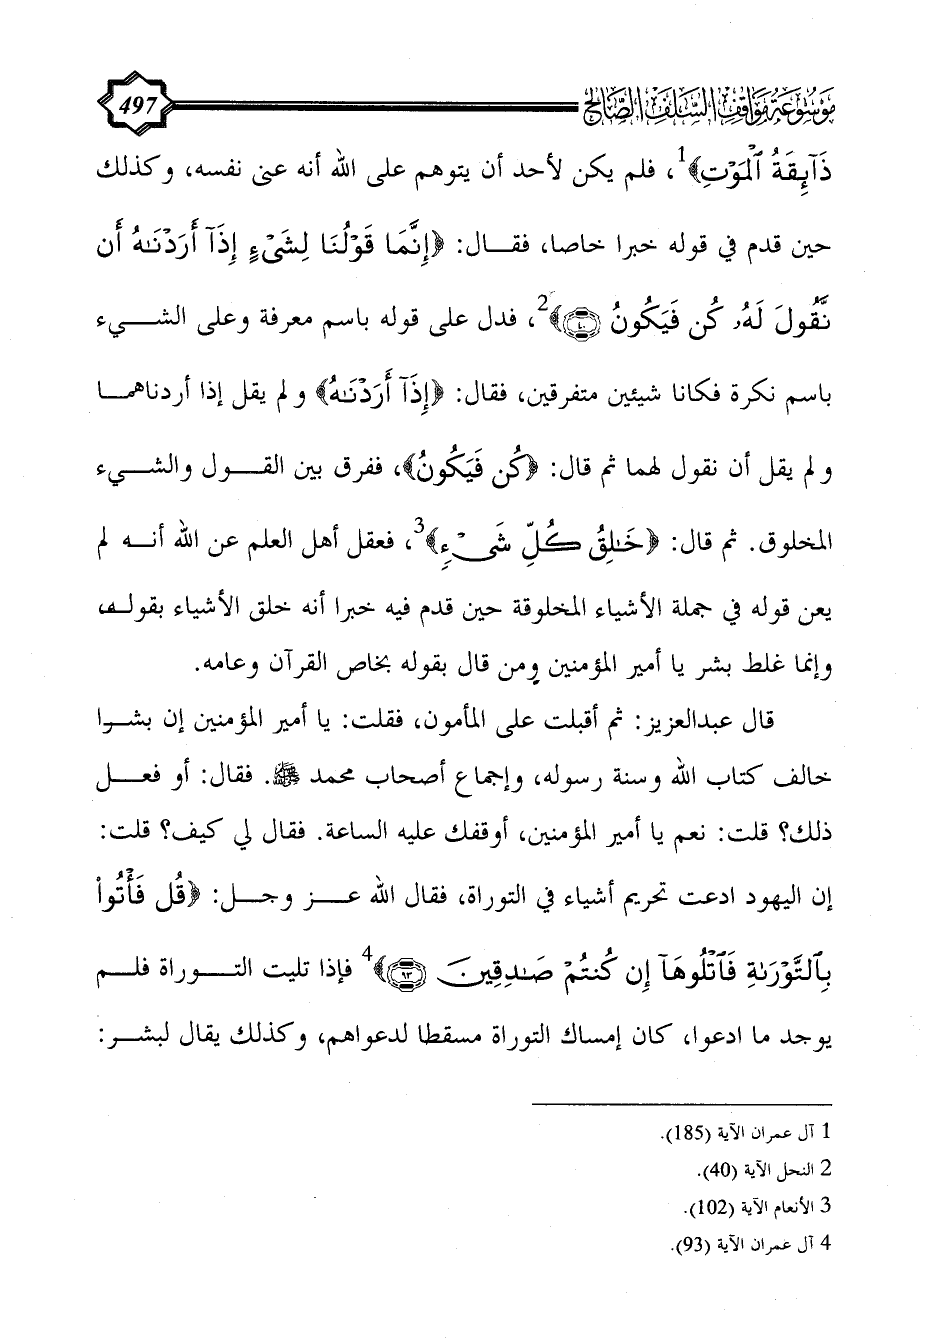 موسوعة مواقف السلف الصالح
497
ذَآئِقَةُ ٱلْمَوْتِ﴾1، فلم يكن لأحد أن يتوهم على الله أنه عنى نفسه، وكذلك
حين قدم في قوله خبرا خاصا، فقال: ﴿إِنَّمَا قَوْلُنَا لِشَىْءٍ إِذَآ أَرَدْنَٰهُ أَن
نَّقُولَ لَهُۥ كُن فَيَكُونُ ۝٤٠﴾2، فدل على قوله باسم معرفة وعلى الشيء
باسم نكرة فكانا شيئين متفرقين، فقال: ﴿إِذَآ أَرَدْنَٰهُ﴾ ولم يقل إذا أردناهما
ولم يقل أن نقول لهما ثم قال: ﴿كُن فَيَكُونُ﴾، ففرق بين القول والشيء
المخلوق. ثم قال: ﴿خَٰلِقُ كُلِّ شَىْءٍ﴾3، فعقل أهل العلم عن الله أنه لم
يعن قوله في جملة الأشياء المخلوقة حين قدم فيه خبرا أنه خلق الأشياء بقوله،
وإنما غلط بشر يا أمير المؤمنين ومن قال بقوله بخاص القرآن وعامه.
قال عبدالعزيز: ثم أقبلت على المأمون، فقلت: يا أمير المؤمنين إن بشرا
خالف كتاب الله وسنة رسوله، وإجماع أصحاب محمد ﷺ. فقال: أو فعل
ذلك؟ قلت: نعم يا أمير المؤمنين، أوقفك عليه الساعة. فقال لي كيف؟ قلت:
إن اليهود ادعت تحريم أشياء في التوراة، فقال الله عز وجل: ﴿قُل فَأْتُوا۟
بِٱلتَّوْرَىٰةِ فَٱتْلُوهَآ إِن كُنتُمْ صَٰدِقِينَ ۝٩٣﴾4 فإذا تليت التوراة فلم
يوجد ما ادعوا، كان إمساك التوراة مسقطا لدعواهم، وكذلك يقال لبشر:
1 آل عمران الآية (185).
2 النحل الآية (40).
3 الأنعام الآية (102).
4 آل عمران الآية (93).